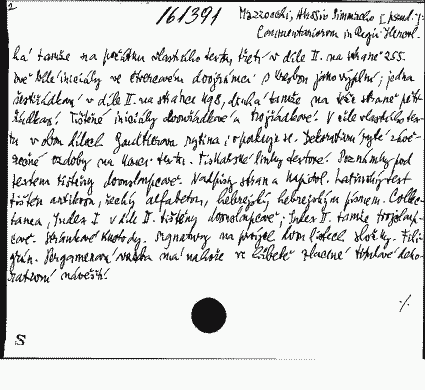 2
161391
Mazzocchi, Alessio Simmacho [pseud.]:
Commentariorum in Regii Hercul.
há tamže na počátku vlastního textu, třetí v díle II. na straně 255.
Dvě velké iniciály ve čtvercovém dvojrámci s kresbou jako výplní; jedna
šestiřádková v díle II. na straně 498, druhá tamže na téže straně pěti-
řádková. Tištěné iniciály dvouřádkové a trojřádkové. V díle vlastního tex-
tu v obou dílech rytina, opakuje se. Dekorativní ryté závě-
rečné ozdoby na konci textu. Tiskařské linky textové. Poznámky pod
textem tištěny dvousloupcově. Nadpisy stran a kapitol. Latinský text
tištěn antikvou, řecký alfabetou, hebrejský hebrejským písmem. Collec-
tanea, Index I v díle II. tištěny dvousloupcově, Index II. tamže trojsloup-
cově. Stránkové kustody. Signatury na prvých dvou listech složky. Fili-
grán. Pergamenová vazba má nahoře ve hřbetě zlacené titulové deko-
rativní návěští.
./.
S